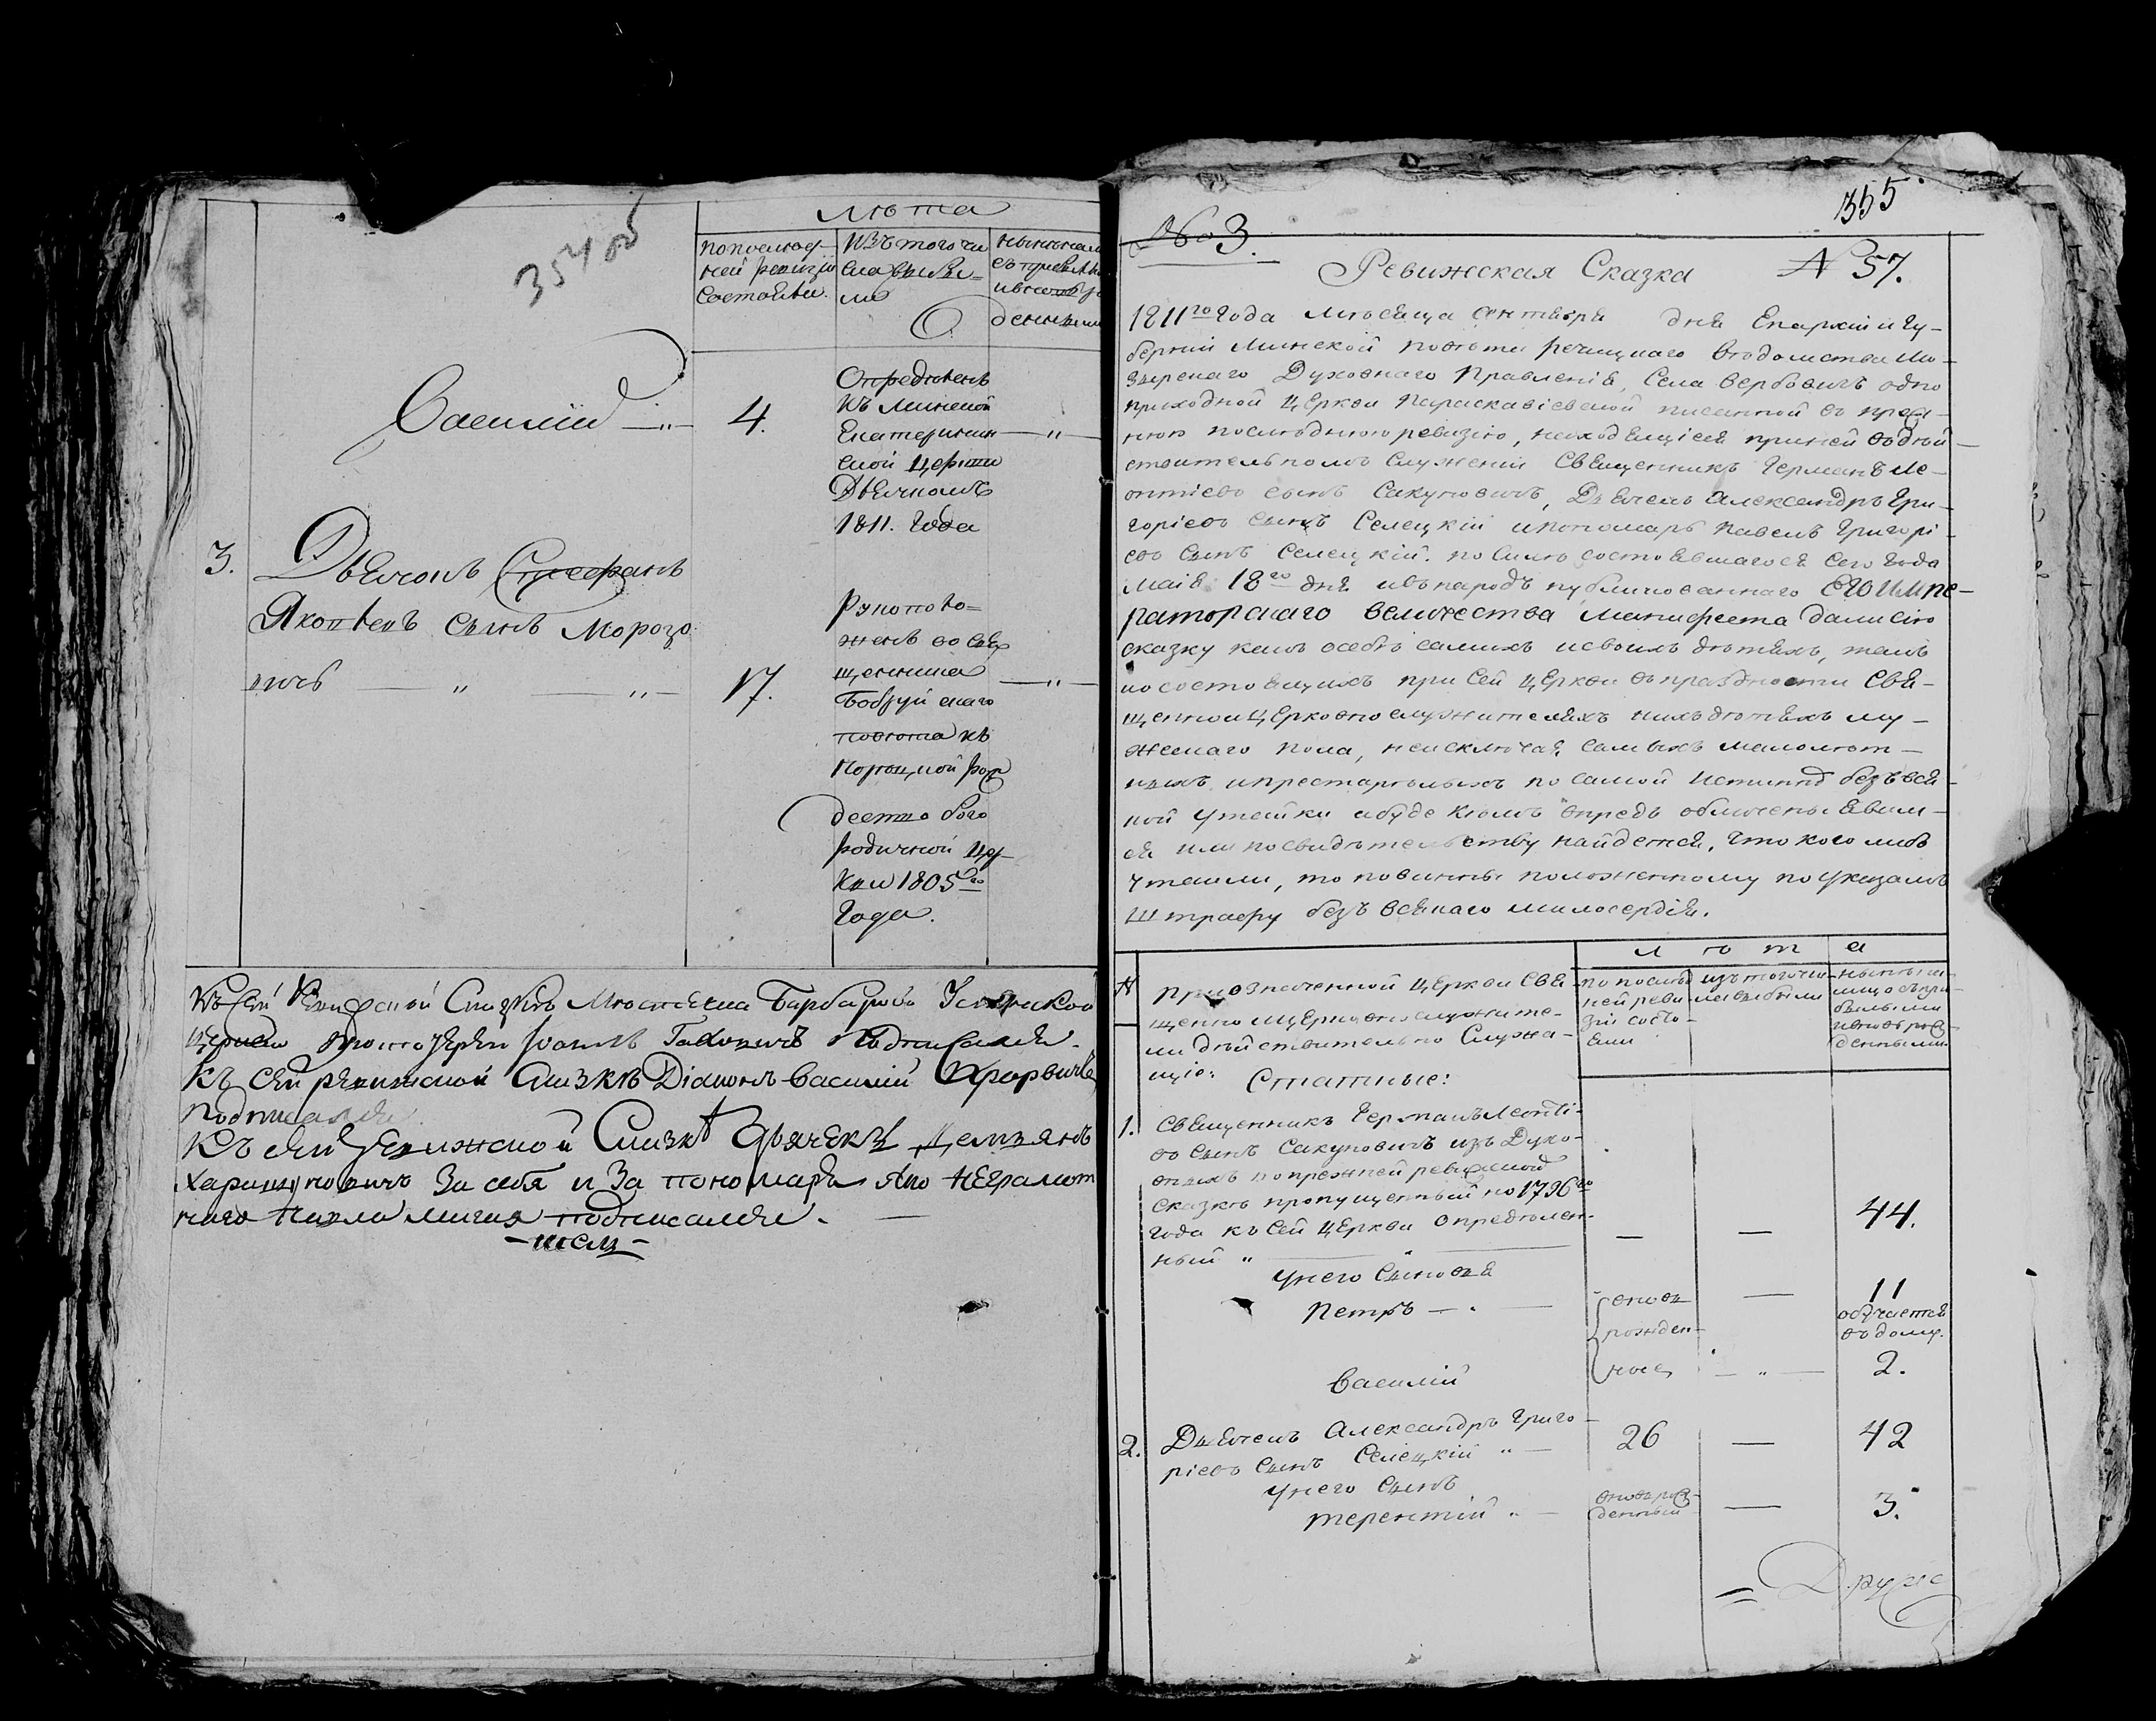 354 об
лѣта
по послед-
ней ревизіи
состояли.
изъ того чи
сла выбы-
ли
Василій — „ —
4.
Опредѣленъ
къ Минской
Екатеринин
ской церкви
Дьячкомъ
1811. Года
3.
Дьячокъ Стефанъ
Яковлевъ сынъ Морозо
вичъ — „ — „ —
17.
Рукополо=
женъ во свя
щенника
Бобруйскаго
повѣта къ
рож
дество Бого
родичной цер
кви 1805го
Года.
Къ сей Сказкѣ Мѣстечка Барбарова
церкви Іоаннъ подписался.
Къ сей ревижской сказкѣ Діаконъ Василій
подписался
Къ сей ревижской Сказкѣ дьячекъ Демьянъ
за себя и за пономаря яко неграмот
наго подписался. —
355
№ 3.
Ревижская Сказка № 57.
1811го Года мѣсяца сентября дня Епархіи и Гу-
берніи Минской повѣта Речицкаго вѣдомства Мо-
зырскаго Духовнаго Правленія, Села Вербовичъ одно
приходной церкви Параскавіевской писанной въ пред-
нюю послѣднюю ревизію, находящіеся при ней въ дѣй-
ствительномъ служеніи Священникъ Германъ Ле-
онтіевъ сынъ Сакуновичъ, Дьячекъ Александръ Гри-
горіевъ сынъ Селецкій и пономарь Павелъ Григорі-
евъ сынъ Селецкій. по силѣ состоявшагося сего года
маія 18го дня и въ народъ публикованнаго ЕГО ИМПЕ-
раторскаго величества манифеста дали сію
сказку какъ о себѣ самихъ и своихъ дѣтяхъ, такъ
и о состоящихъ при сей церкви въ праздности Свя-
щенно и церковнослужителяхъ и ихъ дѣтяхъ му-
жескаго пола, не исключая самыхъ малолѣт-
ныхъ и престарѣлыхъ по самой истиннѣ безъ вся-
кой утайки а буде кѣмъ впредь обличены явим-
ся или по свидѣтельству найдется, что кого либо
утаили, то повинны положенному по указамъ
штрафу безъ всякаго милосердія.
№
При означенной церкви свя
щенно и церковнослужите-
ли дѣйствительно служа-
щіе:
лѣта
по послѣд
ней реви
зіи состо-
яли
изъ того чи-
сла выбыли
нынѣ на
лицо съ при-
былыми
и вновь рож-
денными
Статные:
1. Священникъ Германъ Леонті-
въ сынъ Сакуновичъ изъ Духо-
вныхъ по прежней ревижской
сказкѣ пропущенный но 1796го
года къ сей церкви опредѣлен-
ный „ — „ — — — 44.
у него сыновья
Петръ — „ — вновь — 11
рожден-
ные
обучается
въ дому.
Василій — „ — 2.
2. Дьячекъ Александръ Григо-
ріевъ сынъ Селецкій „ — 26 — 42
у него сынъ
Терентій „ — вновь рож-
денный — 3.